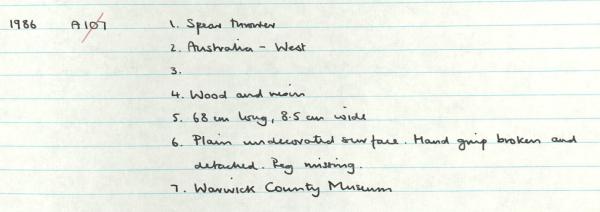 1986 A107 1. Spear thrower
2. Australia - West
3.
4. Wood and resin
5. 68 cm long, 8.5 cm wide
6. Plain undecorated surface. Hand grip broken and
detached. Peg missing.
7. Warwick County Museum